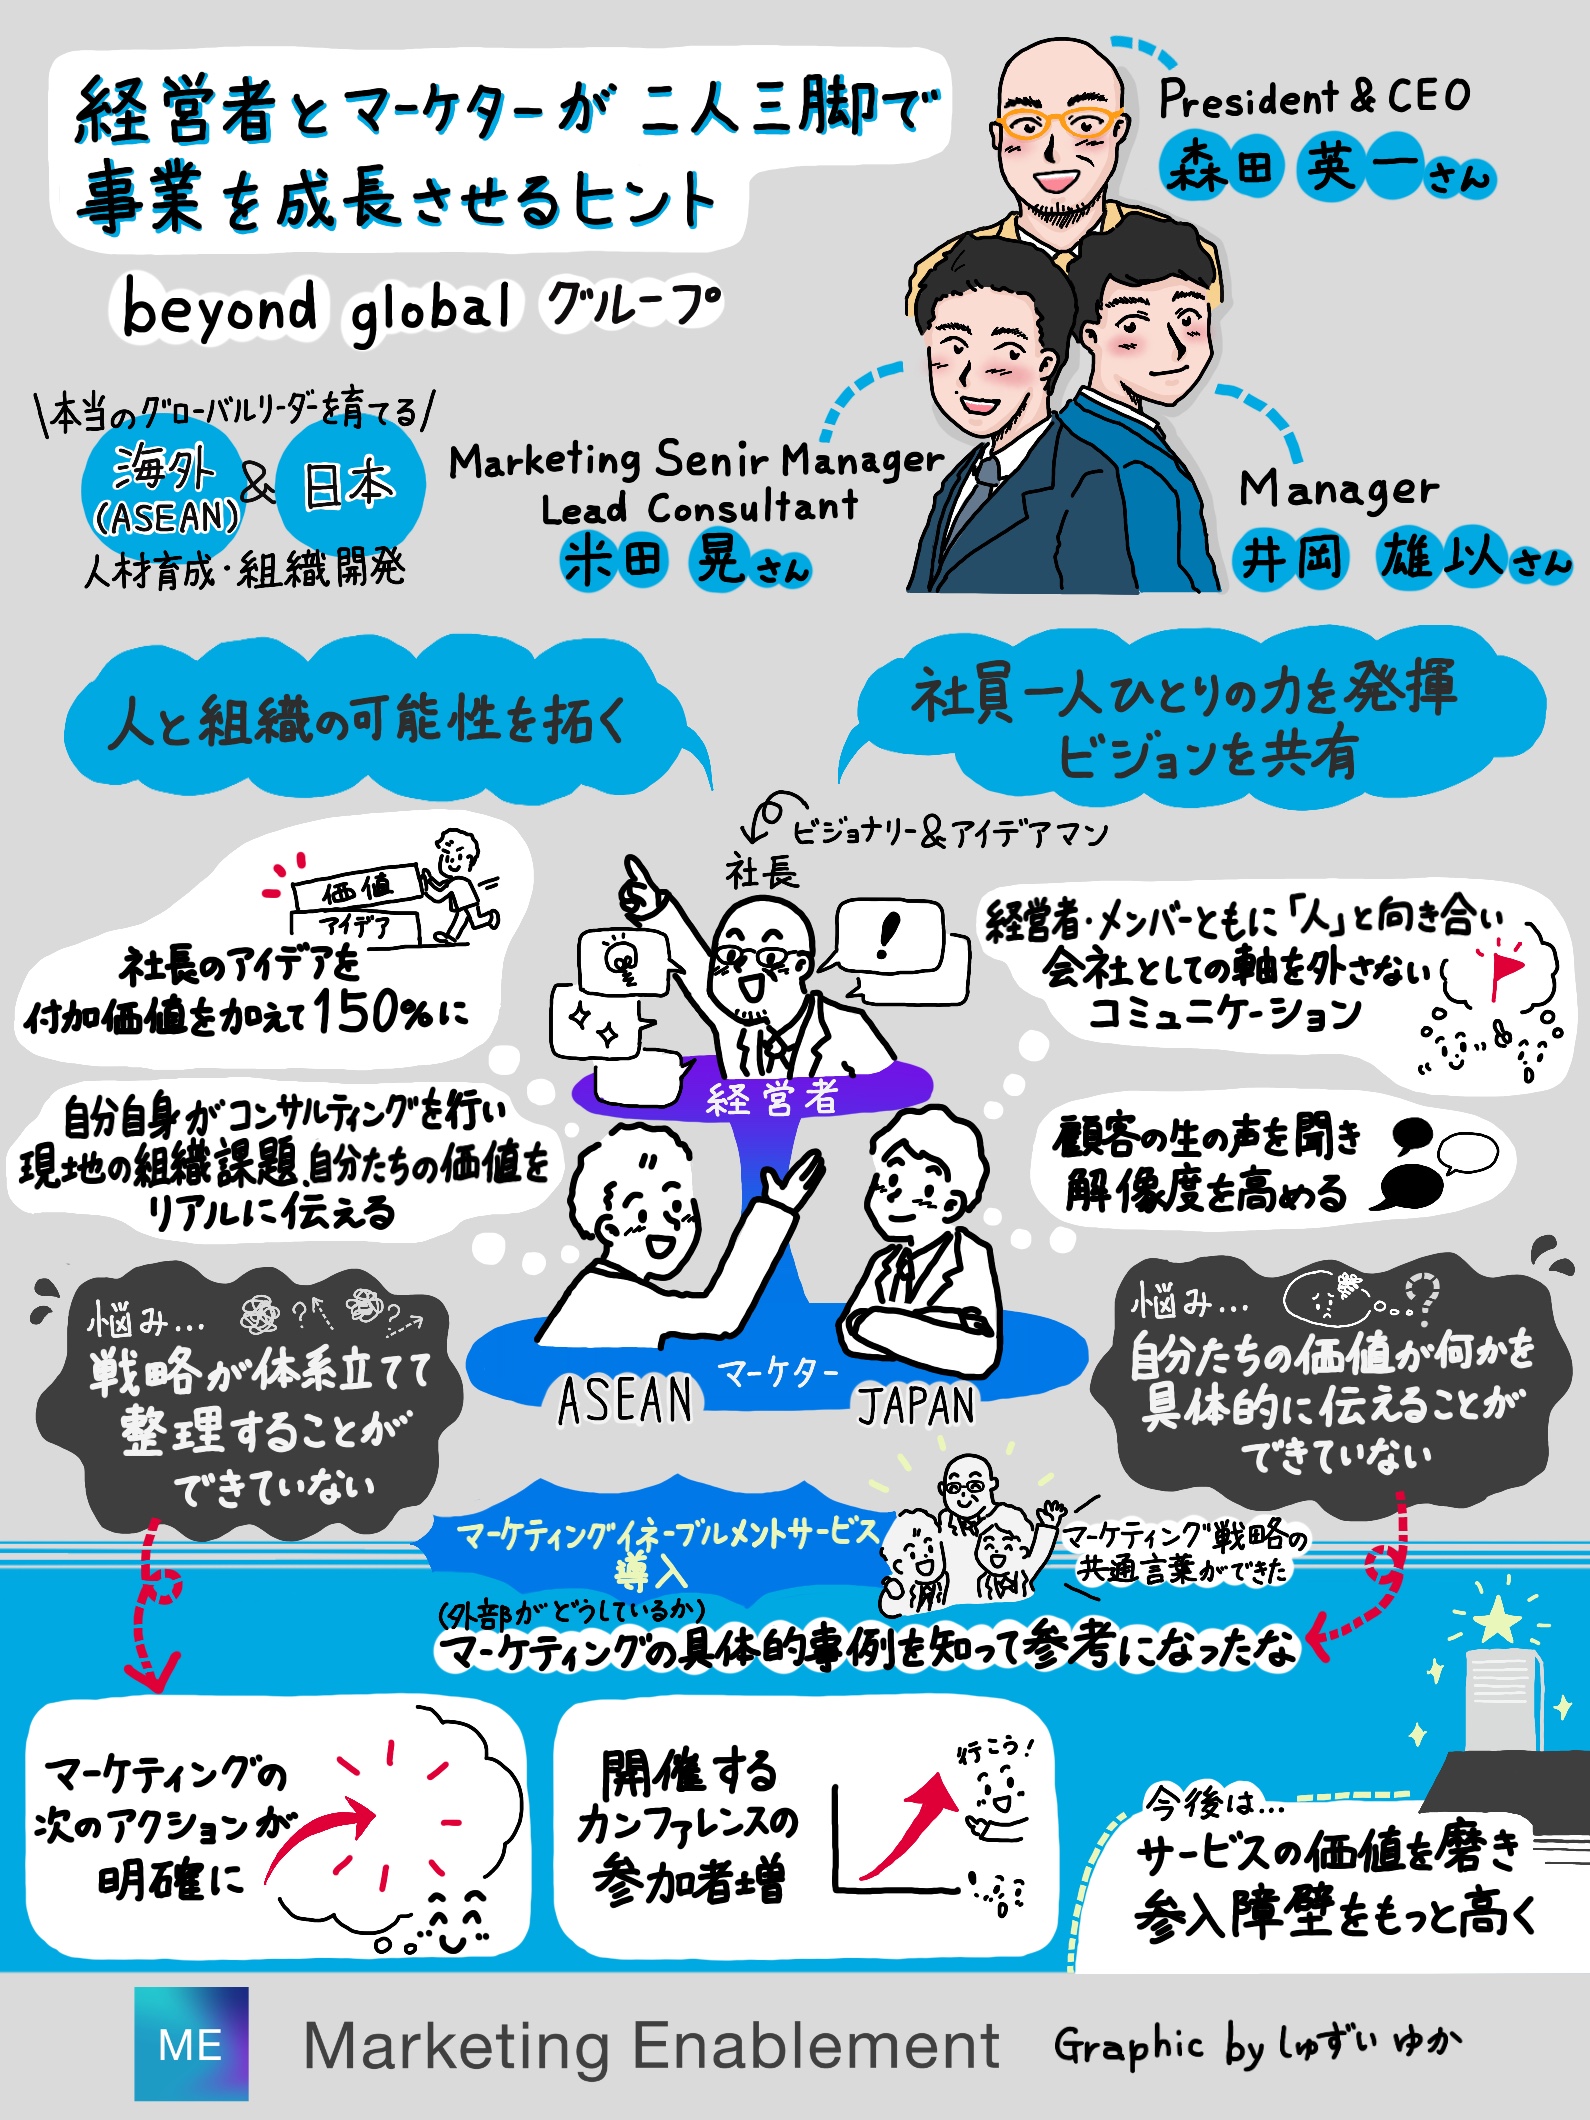 経営者とマーケターが二人三脚で
事業を成長させるヒント
beyond global グループ
President & CEO
森田 英一さん
\本当のグローバルリーダーを育てる/
海外
(ASEAN)
&
日本
人材育成・組織開発
Marketing Senir Manager
Lead Consultant
米田 晃さん
Manager
井岡 雄以さん
人と組織の可能性を拓く
社員一人ひとりの力を発揮
ビジョンを共有
ビジョナリー&アイデアマン
社長
価値
アイデア
社長のアイデアを
付加価値を加えて150%に
!
経営者・メンバーともに「人」と向き合い
会社としての軸を外さない
コミュニケーション
経営者
自分自身がコンサルティングを行い
現地の組織課題、自分たちの価値を
リアルに伝える
顧客の生の声を聞き
解像度を高める
悩み...
? ?
戦略が体系立てて
整理することが
できていない
マーケター
ASEAN
JAPAN
悩み...
?
自分たちの価値が何かを
具体的に伝えることが
できていない
マーケティングイネーブルメントサービス
導入
マーケティング戦略の
共通言葉ができた
(外部がどうしているか)
マーケティングの具体的事例を知って参考になったな
マーケティングの
次のアクションが
明確に
開催する
カンファレンスの
参加者増
行こう!
今後は...
サービスの価値を磨き
参入障壁をもっと高く
ME
Marketing Enablement
Graphic by しゅずい ゆか